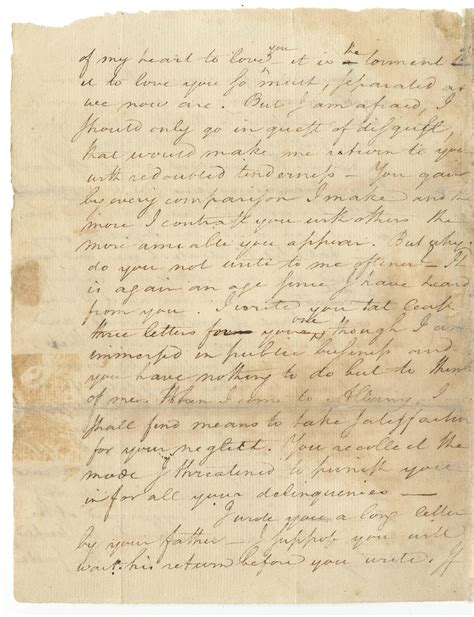 of my heart to love you it is the torment
it to love you so much, separated as
we now are. But I am afraid, I
should only go in quest of disquiet,
that would make me return to you
with redoubled tenderness – You gain
by every comparison I make and the
more I contrast you with others the
more amiable you appear. But why
do you not write to me oftener – It
is again an age since I have heard
from you. I write you at least
three letters for your one, though I am
immersed in public business and
you have nothing to do but to think
of me. When I come to Albany, I
shall find means to take satisfaction
for your neglect. You recollect the
mode I threatened to punish you
in for all your delinquencies –
I wrote you a long letter
by your father – I suppose you will
wait his return before you write. If